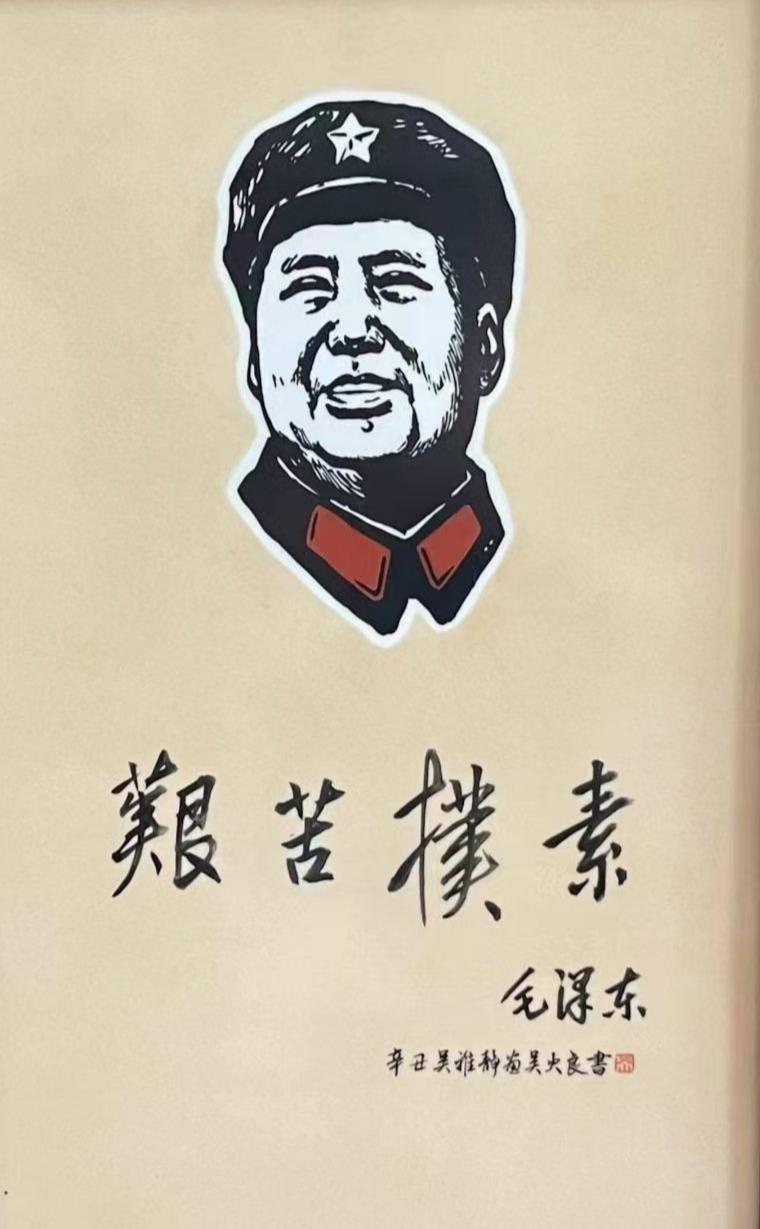 艱苦樸素
毛泽东
辛丑吴雅静画吴火良書